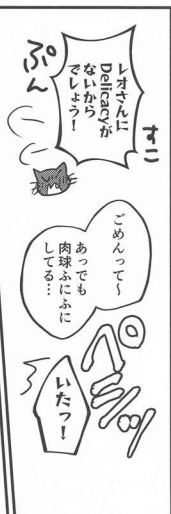 レオさんに
Delicacyが
ないから
でしょう！
すこ
ぷん
ごめんって～
あっでも
肉球ふにふに
してる…
ペシッ
いたっ！